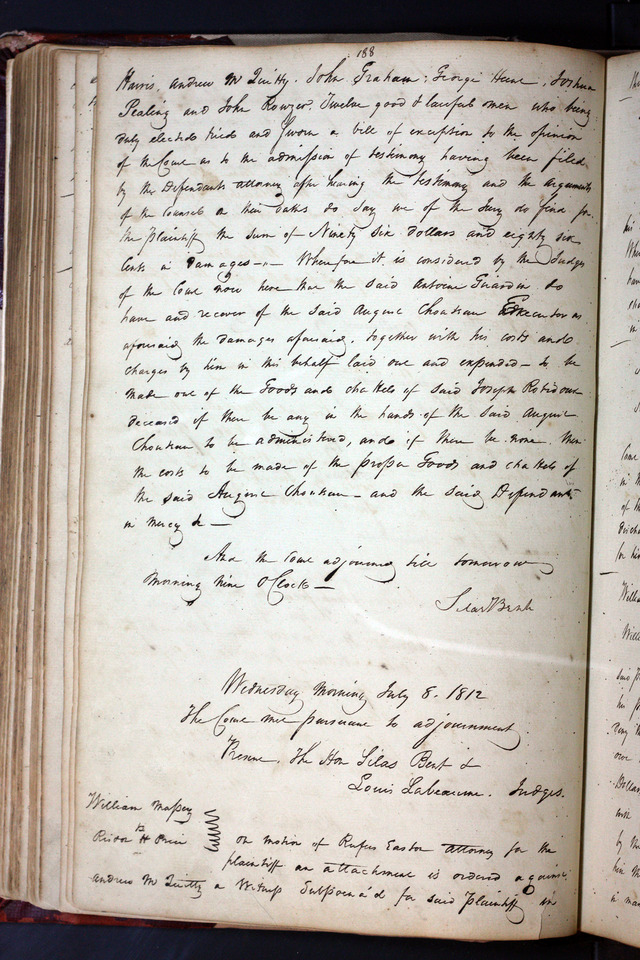 188
Harris, Andrew Mc Quitty, John Graham, George Henc, Joshua
Pealing and John Rowzer, Twelve good & lawful men who being
duly elected tried and sworn a bill of exception to the opinion
of the Court as to the admission of testimony having been filed
by the Defendants attorney after hearing the testimony and the arguments
of the Counsel on their oaths do say we of the Jury do find for
the plaintiff the sum of Ninety six dollars and eighty six
Cents in damages — Wherefore it is considered by the Judges
of the Court now here that the said Antoine Girardin do
have and recover of the said August Chouteau Executor as
aforesaid the damages aforesaid, together with his costs and
charges by him in this behalf laid out and expended — to be
made out of the Goods and chattels of said Joseph Robidoux
deceased if there be any in the hands of the said August
Chouteau to be administered, and if there be none then
the costs to be made of the proper Goods and chattels of
the said August Chouteau — and the said Defendant
in mercy &c —
And the Court adjourned till tomorrow
Morning Nine O Clock —
Silas Bent
Wednesday Morning July 8. 1812
The Court met pursuant to adjournment
Present. The Hon Silas Bent &
Louis Labeaume. Judges.
William Massey
vs
Risdon H Price
on motion of Rufus Easton attorney for the
plaintiff an attachment is ordered against
Andrew Mc Quitty a Witness Subpoena'd for said plaintiff in